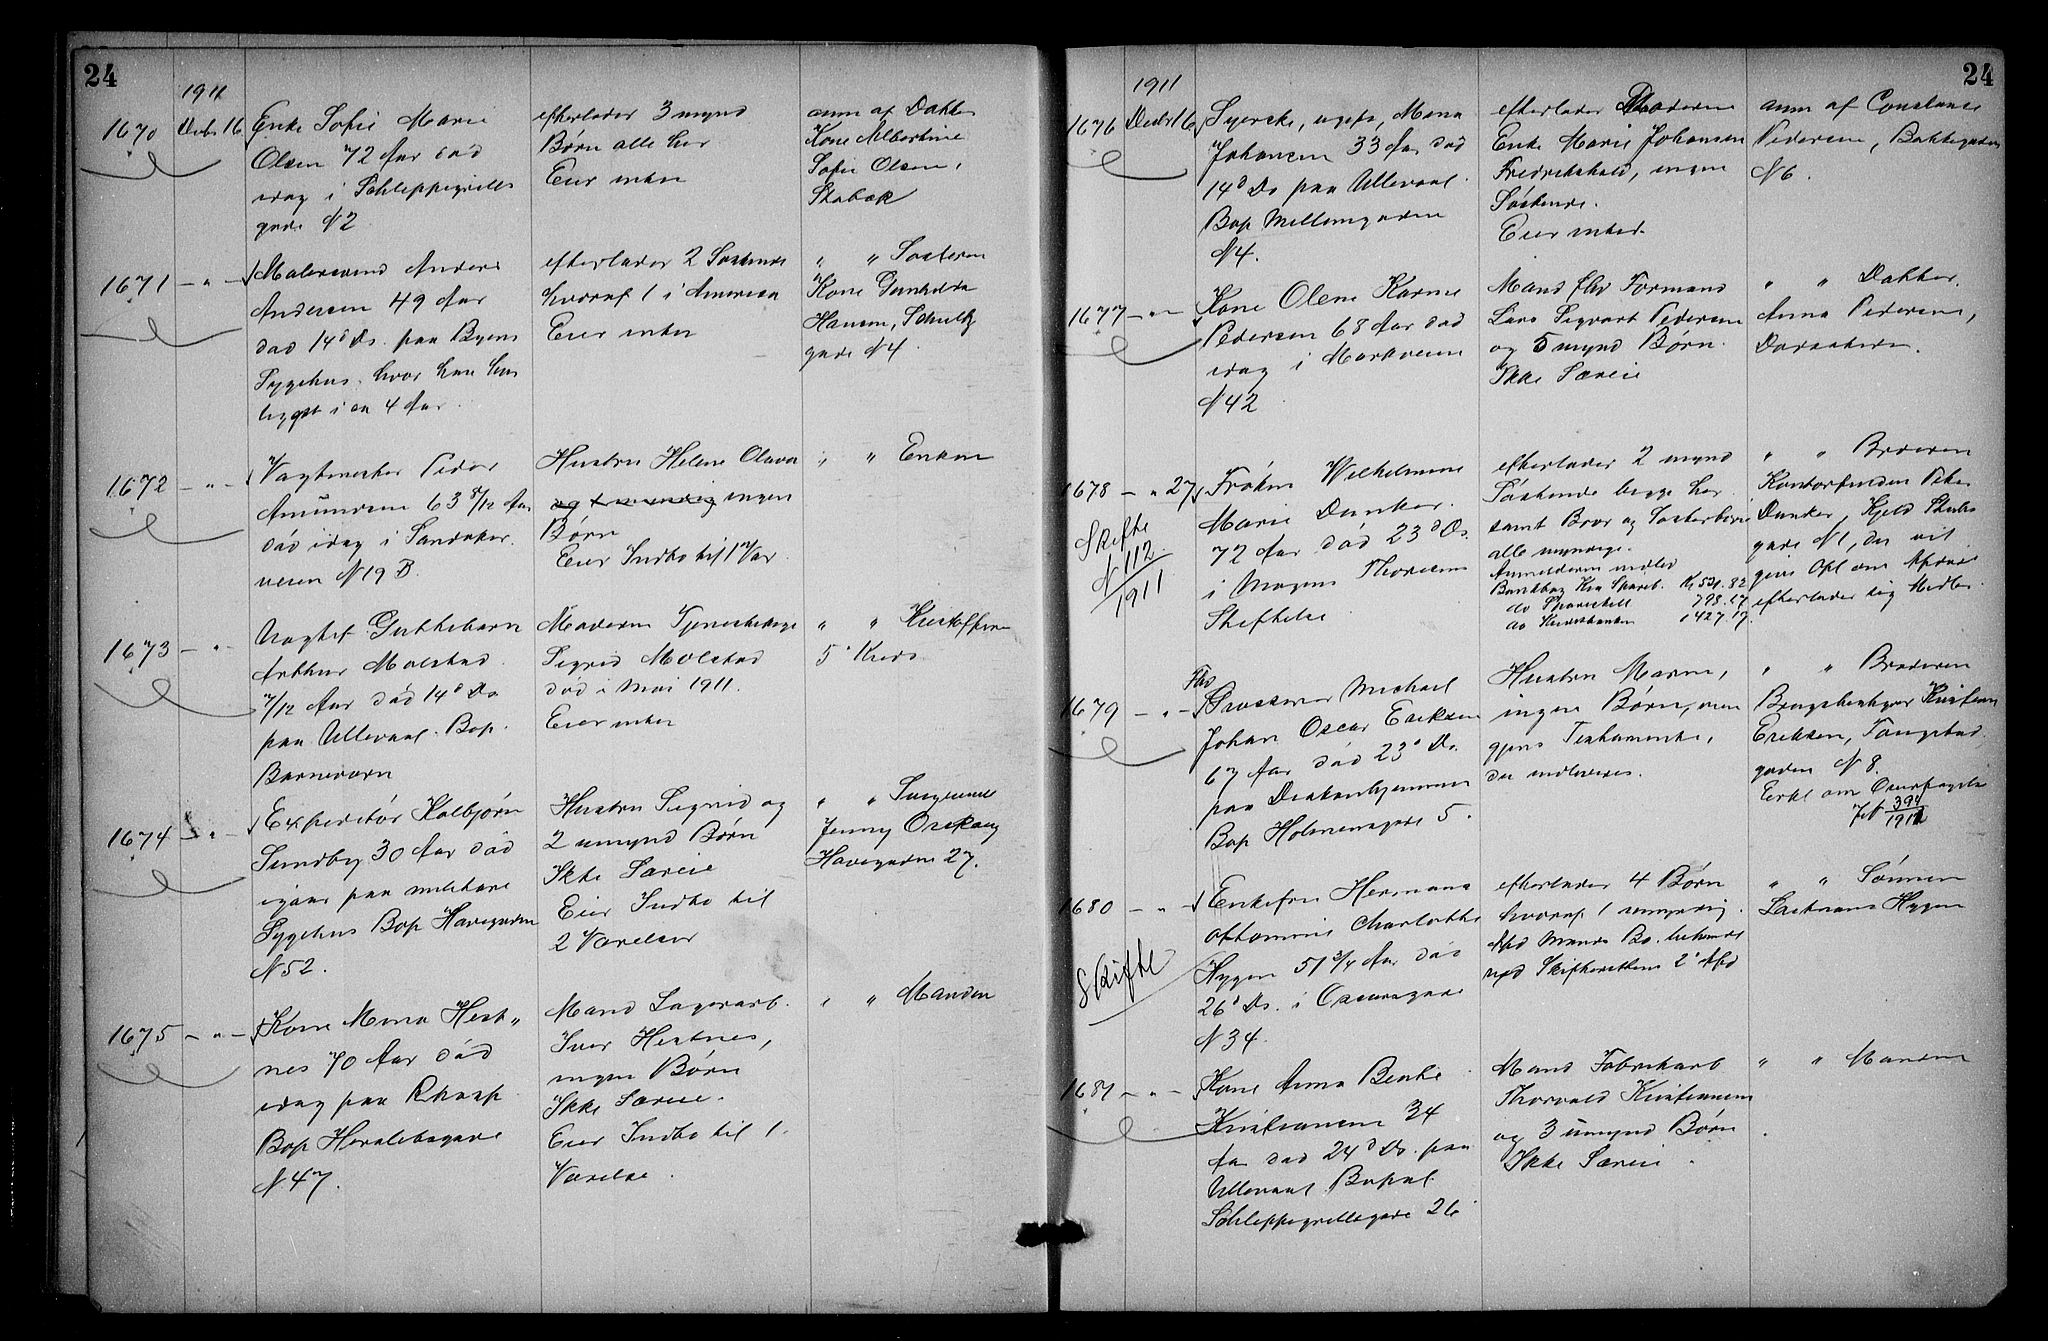 24
1911
1670 Decbr 16 Enke Sofie Marie
Olsen 72 Aar død
idag i Schleppegrells
gade N 2
efterlader 3 mynd
Børn alle her
Eier intet
anm af Datter
Kone Albertine
Sofie Olsen,
Stabæk
1671 - " - Malersvend Anders
Andersen 49 Aar
død 14d Ds. paa Byens
Sygehus, hvor han har
ligget i ca 4 Aar.
efterlader 2 Søskende
hvoraf 1 i Amerika
Eier intet
" " Søsteren
Kone Gunhilda
Hansen, Schultz
gade N 4.
1672 - " - Vagtmester Peder
Amundsen 63 8/12 Aar
død idag i Sandaker
veien N 19 B.
Hustru Helene Olava
og 1 umyndig ingen
Børn
Eier Indbo til 1 Vær.
" " Enken
1673 - " - Uægtef Guttebarn
Arthur Molstad
7/12 Aar død 14d Ds
paa Ullevaal. Bop.
Barneværn
Moderen Tjenestepige
Sigrid Molstad
død i Mai 1911.
Eier intet
" "
5' Kreds
1674 - " - Expeditør Kolbjørn
Sundby 30 Aar død
igaar paa militære
Sygehus Bop Havegaden
N 52.
Hustru Sigrid og
2 umynd Børn
Ikke Særeie
Eier Indbo til
2 Værelser
" "
Jenny
Havegaden 27.
1675 - " - Kone Mina Hest„
nes 70 Aar død
idag paa Rhosp.
Bop Heralebsgade
N 47.
Mand Lagerarb.
Iver Hestnes,
ingen Børn
Ikke Særeie.
Eier Indbo til 1
Værelse.
" " Manden
24
1911
1676 Decbr 16 Syerske, ugift, Mina
Johansen 33 Aar død
14d Ds paa Ullevaal.
Bop Mellemgaden
N 4.
efterlader Moderen
Enke Marie Johansen
Fredrikshald, ingen
Søskende.
Eier intet.
anm af Constance
Pedersen, Bakkegaden
N 6.
1677 - " - Kone Olene Karine
Pedersen 68 Aar død
idag i Markveien
N 42
Mand fhv Formand
Lars Sigvart Pedersen
og 5 mynd Børn.
Ikke Særeie
" " Datter
Anna Pedersen,
1678 - " 27 Frøken Wilhelmine
Marie Dunker.
72 Aar død 23d Ds.
i Mogens Thorsens
Stiftelse
Skifte
N 112
1911
efterlader 2 mynd
Søskende begge her
samt Bror og Søsterbørn
alle myndige.
Anmelderen indlev
Bankbog Kra Spareb. Kr 531.82
do 798.17
do 427.17.
" " Broderen
Dunker, Kjeld Stubs
gade N 1, der vil
give Opl om Afdøde
efterlader sig Midler
1679 - " - Fhv
Grosserer Michael
Johan Oscar Eriksen
67 Aar død 23d Ds.
paa Diakonhjemmet
Bop Holmensgade 5.
Hustru Maren,
ingen Børn, men
gjens Testamente,
der indleveres.
" " Broderen
Brugsbestyrer Kristian
Eriksen,
gaden N 8.
Erkl om Overtagelse
JN 394/1912
1680 - " - Enkefru Hermana
Charlotte
Hygen 51 3/4 Aar død
26d Ds. i Oscarsgade
N 34.
Skifte
efterlader 4 Børn
hvoraf 1 umyndig.
Afd Mands Bo behandl
ved Skifteretten 2' Afd
" " Sønnen
Hygen
1681 - " - Kone Anna Bentie
Kristiansen 34
Aar død 24d Ds. paa
Ullevaal Bopæl
Schleppegrellsgade 26
Mand Fabrikarb
Thorvald Kristiansen
og 3 umynd Børn
Ikke Særeie.
" " Manden